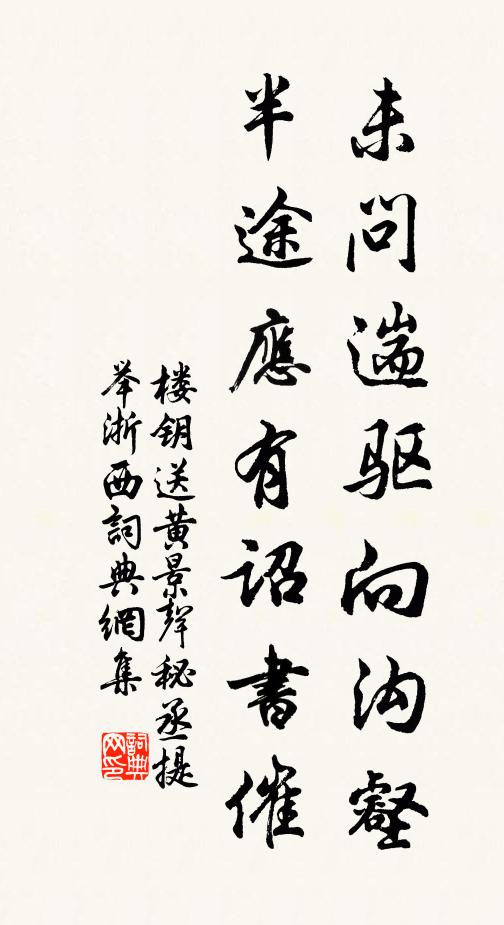 未问遄驱向沟壑
半途應有詔書催
楼钥送黄景聲秘丞提
举浙西詞典網集
詞典
网印